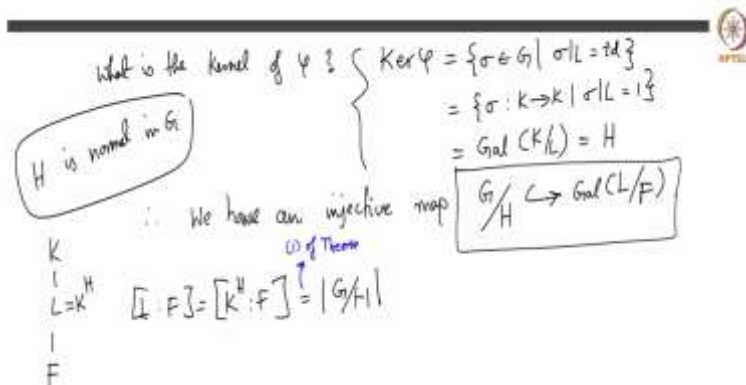 What is the kernel of φ ? { Ker φ = {σ ∈ G | σ|L = id}
= {σ : K → K | σ|L = 1}
= Gal (K/L) = H
H is normal in G
∴ We have an injective map G/H ↪ Gal (L/F)
(1) of Theorem
K
|
L = K^H [L : F] = [K^H : F] = |G/H|
|
F
NPTEL